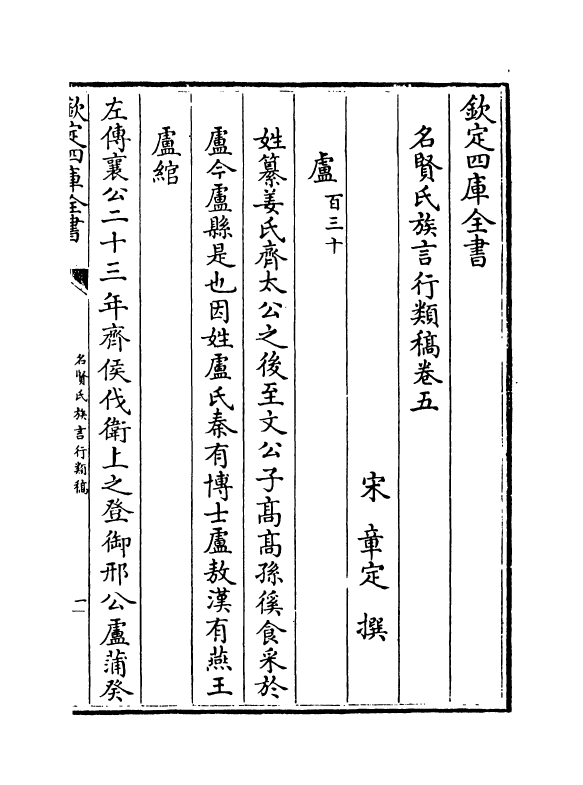 欽定四庫全書
名賢氏族言行類稿卷五
宋 章定 撰
盧 百三十
姓纂姜氏齊太公之後至文公子高高孫徯食采於
盧今盧縣是也因姓盧氏秦有博士盧敖漢有燕王
盧綰
左傳襄公二十三年齊侯伐衛上之登御邢公盧蒲癸
欽定四庫全書
名賢氏族言行類稿
一